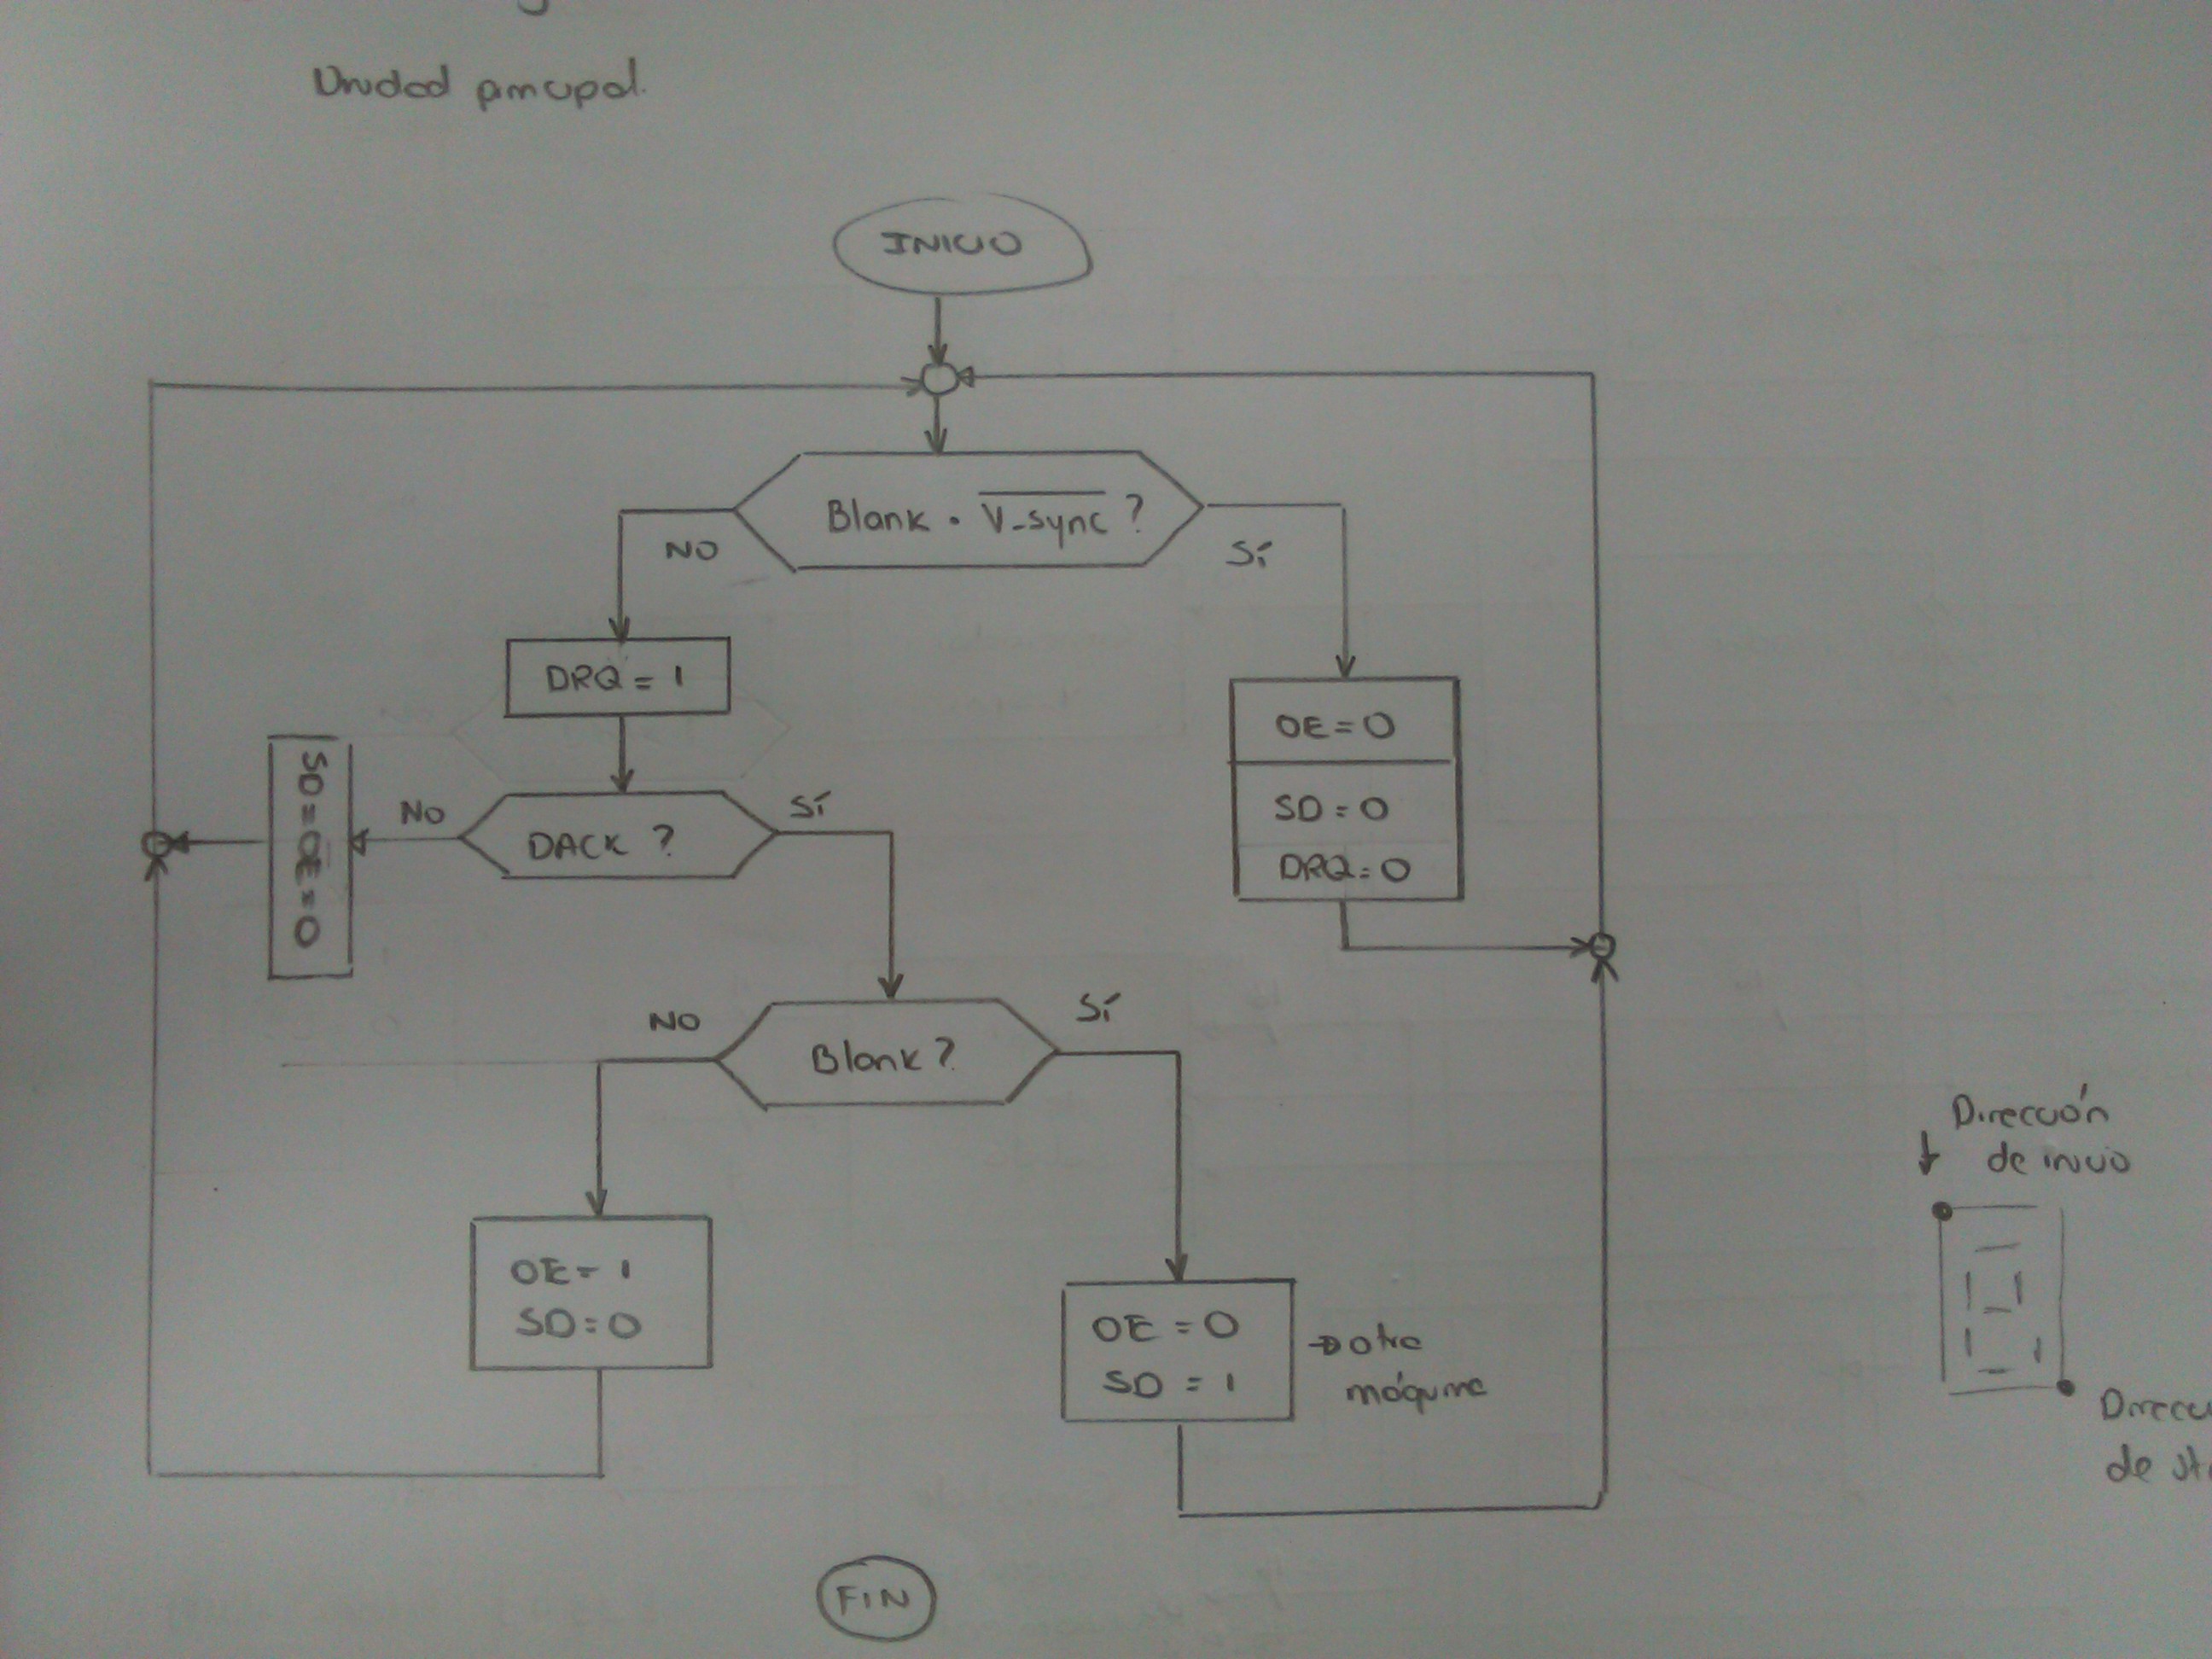 Unidad principal.
INICIO
Blank · V-sync ?
NO
Sí
DRQ = 1
OE = 0
SD = 0
DRQ = 0
SD = OE = 0
NO
DACK ?
Sí
NO
Blank ?
Sí
OE = 1
SD = 0
OE = 0
SD = 1
→ otra
máquina
Dirección
de inicio
de
FIN